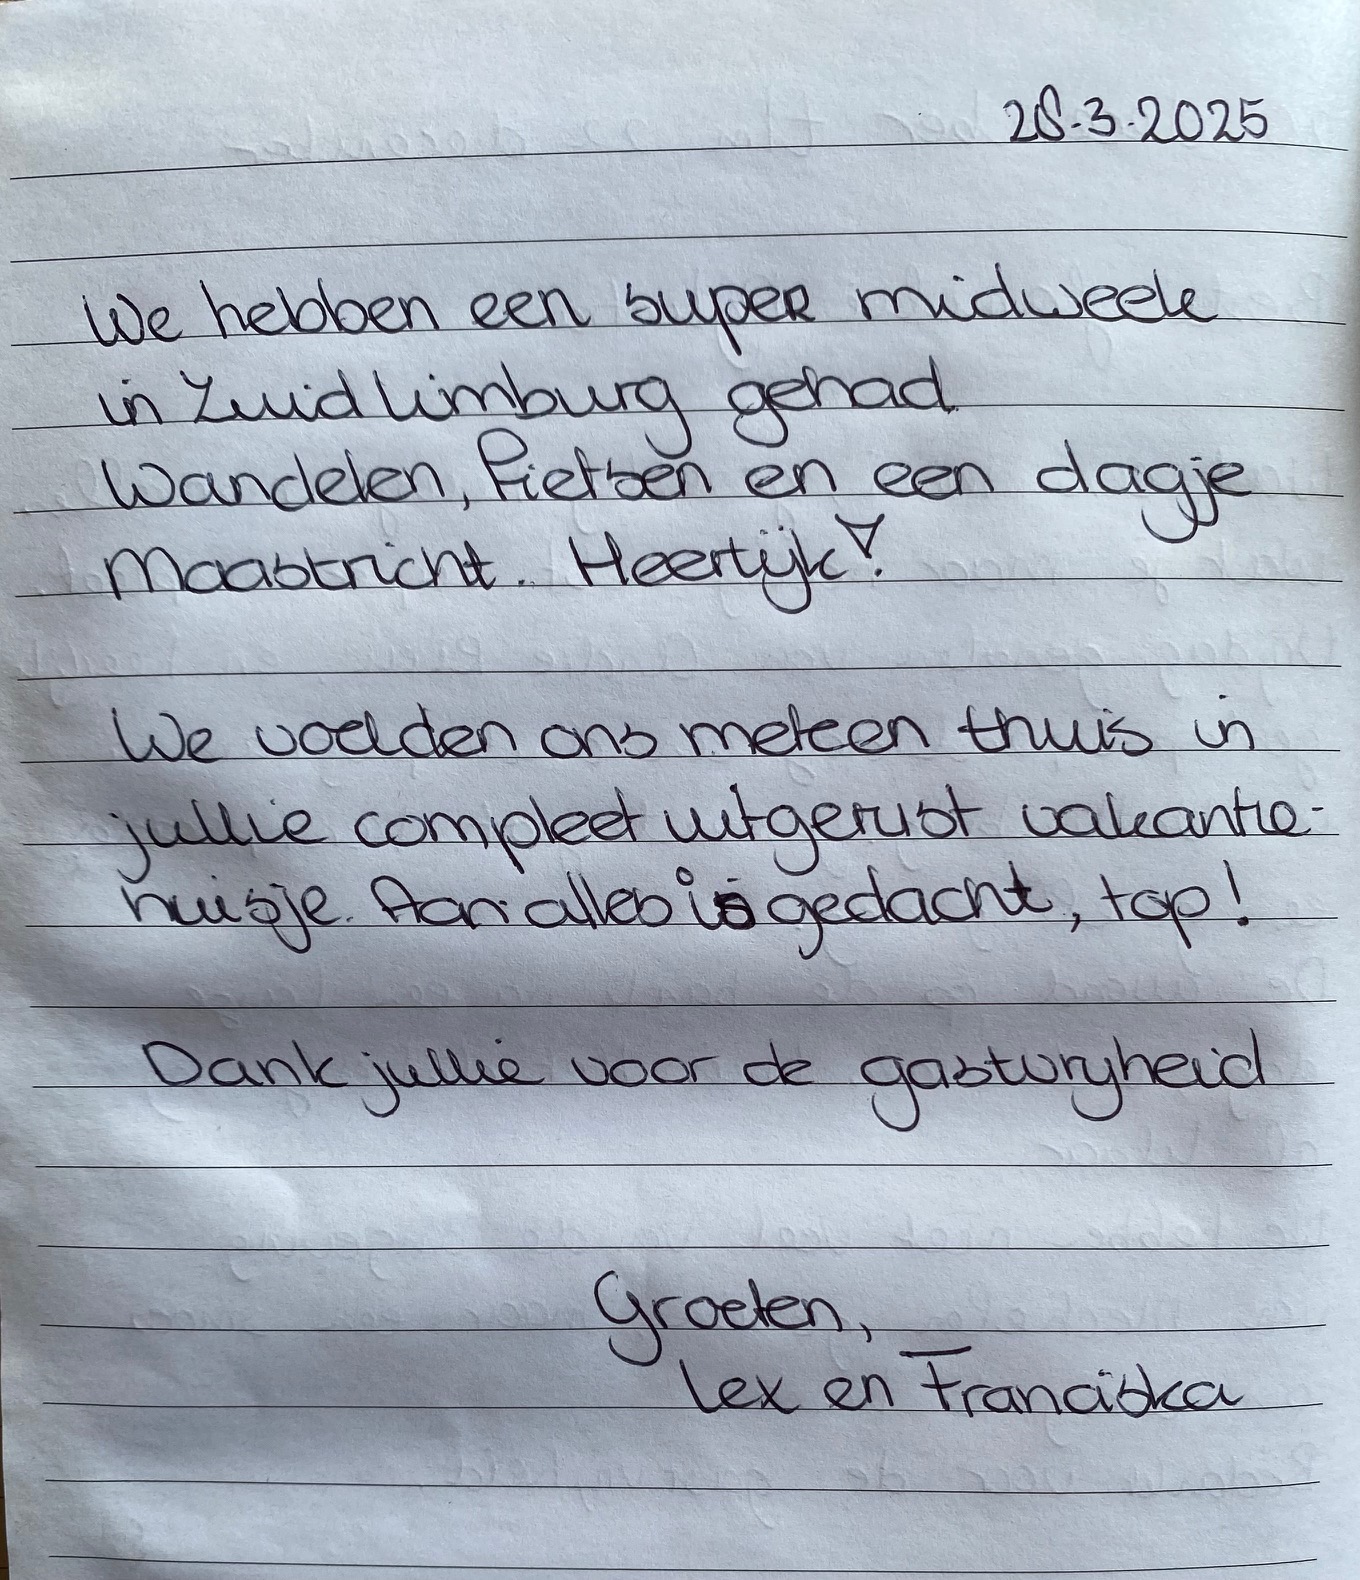 28.3.2025
We hebben een super midweek
in Zuid Limburg gehad
Wandelen, fietsen en een dagje
Maastricht. Heerlijk!
We voelden ons meteen thuis in
jullie compleet uitgerust vakantie-
huisje. Aan alles is gedacht, top!
Dank jullie voor de gastvrijheid
Groeten,
Lex en Franciska